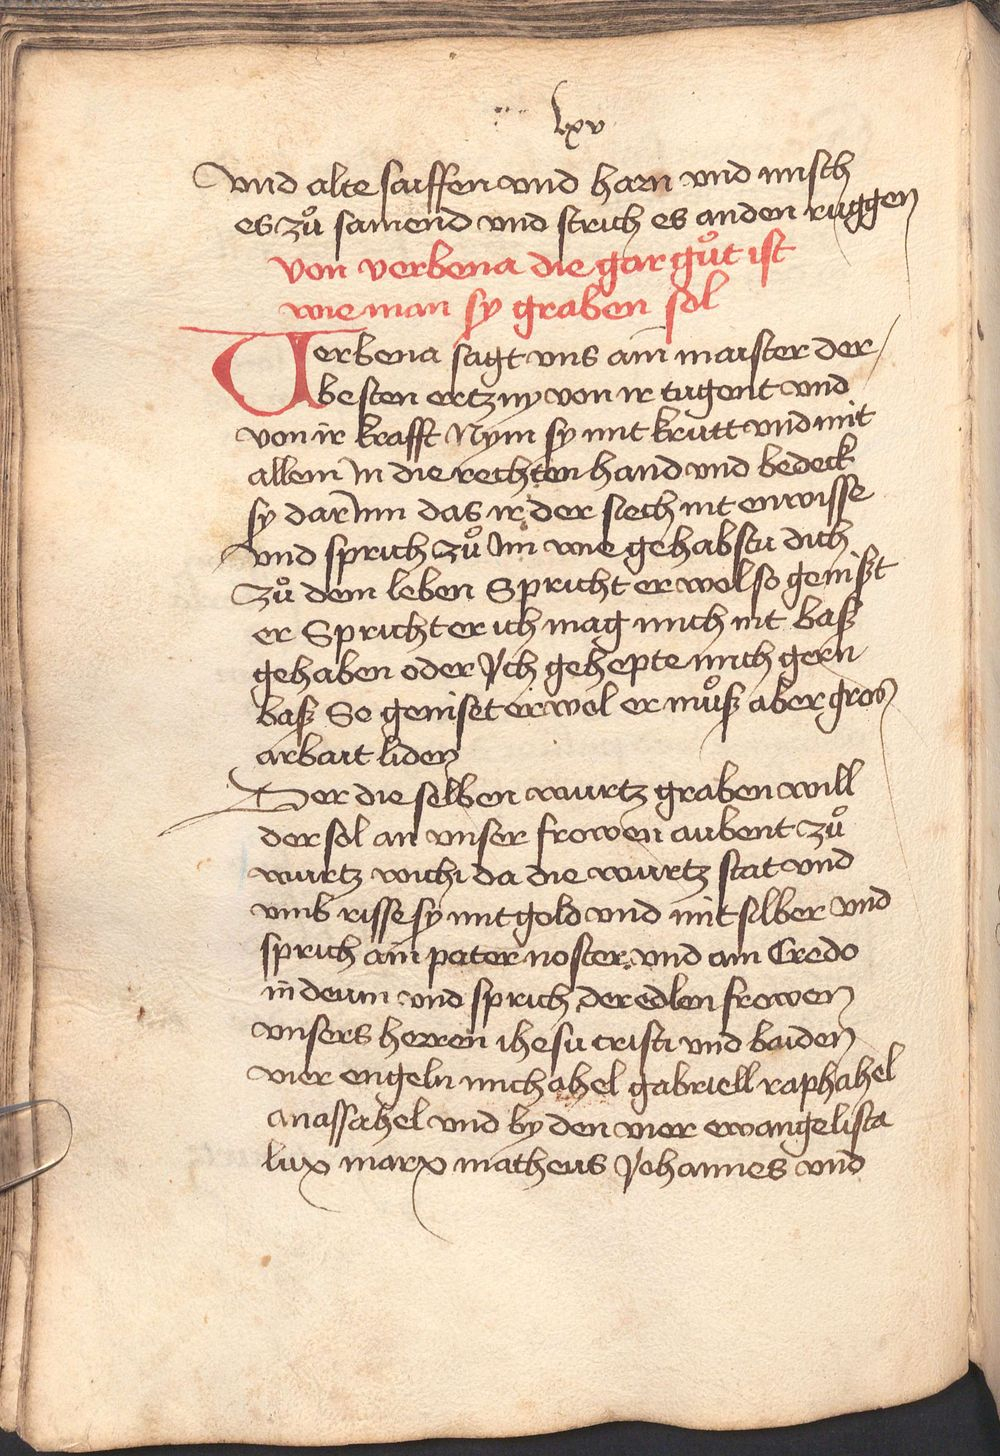 lxv
vnd alte saiffen vnd harn vnd misch
es zuͦ samend vnd strich es an den ruggen
von verbena die gar guͦt ist
wie man sy graben sol
Verbena sagt vns ain maister der
besten ertzny von ir tugent vnd
von ir krafft Nym sy mit krutt vnd mit
allem In die rechten hand vnd bedeck
sy darInn das ir der siech nit enwisse
vnd sprich zuͦ Im wie gehabstu dich
zuͦ dem leben Spricht er wol so genißt
er Spricht er ich mag mich nit baß
gehaben oder Ich gehepte mich gern
baß So geniset er wol er muͦß aber gros
arbait liden
Der die selben wurtz graben will
der sol an vnser frowen aubent zuͦ
wurtz wichi da die wurtz stat vnd
vmb risse sy mit gold vnd mit silber vnd
sprich ain pater noster vnd ain Credo
in deum vnd sprich der edlen frowen
vnsers herren ihesu cristi vnd baiden
vier engeln michahel gabriell raphahel
anassahel vnd by den vier ewangelista
lux marx matheus Johannes vnd